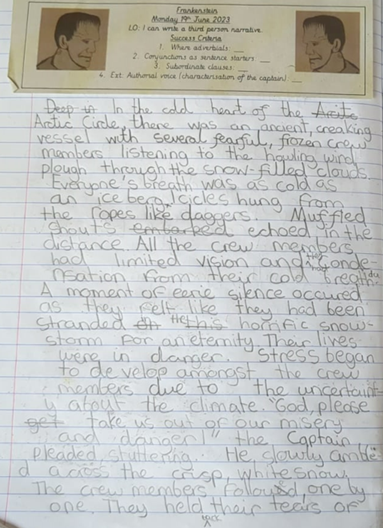 Frankenstein
Monday 19th June 2023
LO: I can write a third person narrative.
Success Criteria
1. Where adverbials: __
2. Conjunctions as sentence starters __
3. Subordinate clauses: __
4. Ext: Authorial voice (characterisation of the captain) __
Deep in In the cold heart of the Arcitc
Arctic Circle, there was an ancient, creaking
vessel with several fearful, frozen crew
members listening to the howling wind
plough through the snow-filled clouds.
Everyone's breath was as cold as
an iceberg. Icicles hung from
the ropes like daggers. Muffled
shouts embarked echoed in the
distance. All the crew members
had limited vision and conde-
nsation from their cold breath.
A moment of eerie silence occured
as they felt like they had been
stranded in this horrific snow-
storm for an eternity. Their lives
were in danger. Stress began
to develop amongst the crew
members due to the uncertaint-
y about the climate. "God, please
get take us out of our misery
and danger!" the Captain
pleaded, stuttering. He slowly amble-
d across the crisp, white snow.
The crew members followed, one by
one. They held their tears of